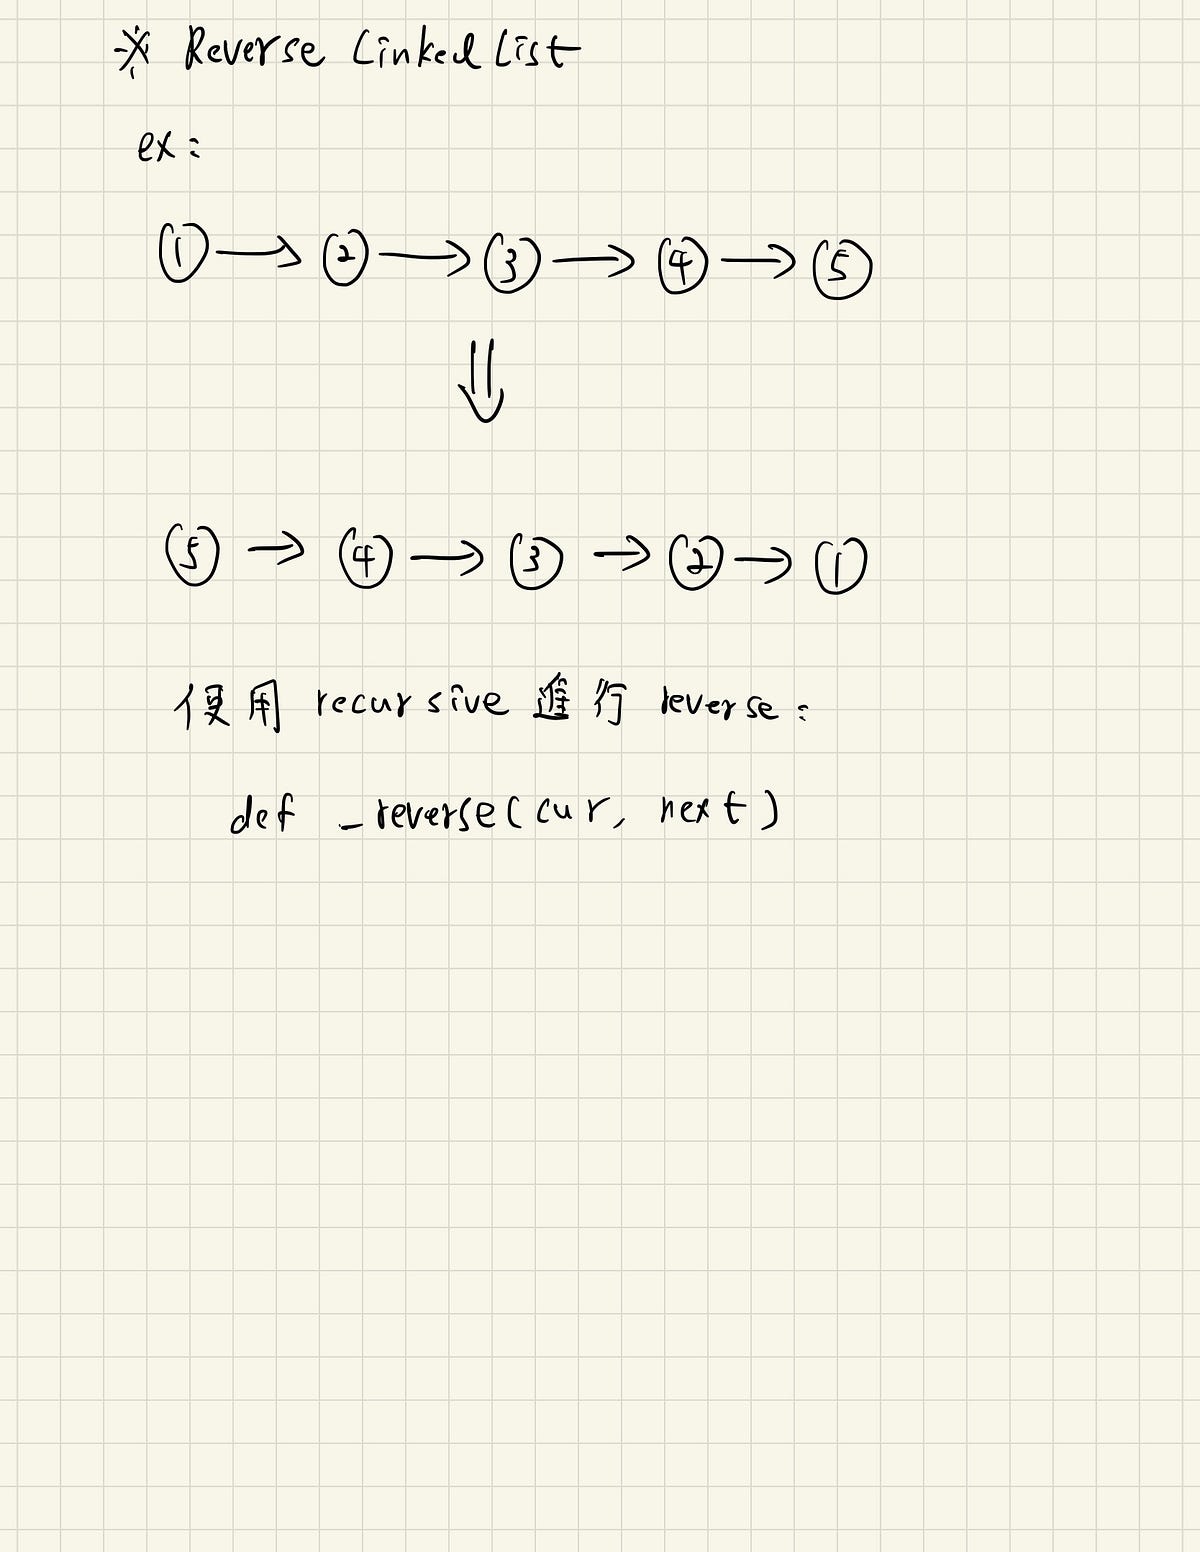 ※ Reverse Linked List
ex:
① → ② → ③ → ④ → ⑤
⇓
⑤ → ④ → ③ → ② → ①
使用 recursive 進行 reverse:
def _reverse(cur, next)